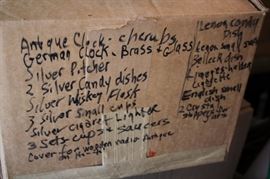 Antique Clock - cherubs
German Clock - Brass & Glass
Silver Pitcher
2 Silver Candy dishes
Silver Whiskey Flask
3 silver small cups
Silver Cigaret Lighter
3 sets cups & saucers
Cover for wooden radio Antique
Lenox candy
Dish
Lenox small
dish
holder
English small
dish
2 Crystal
stoppers